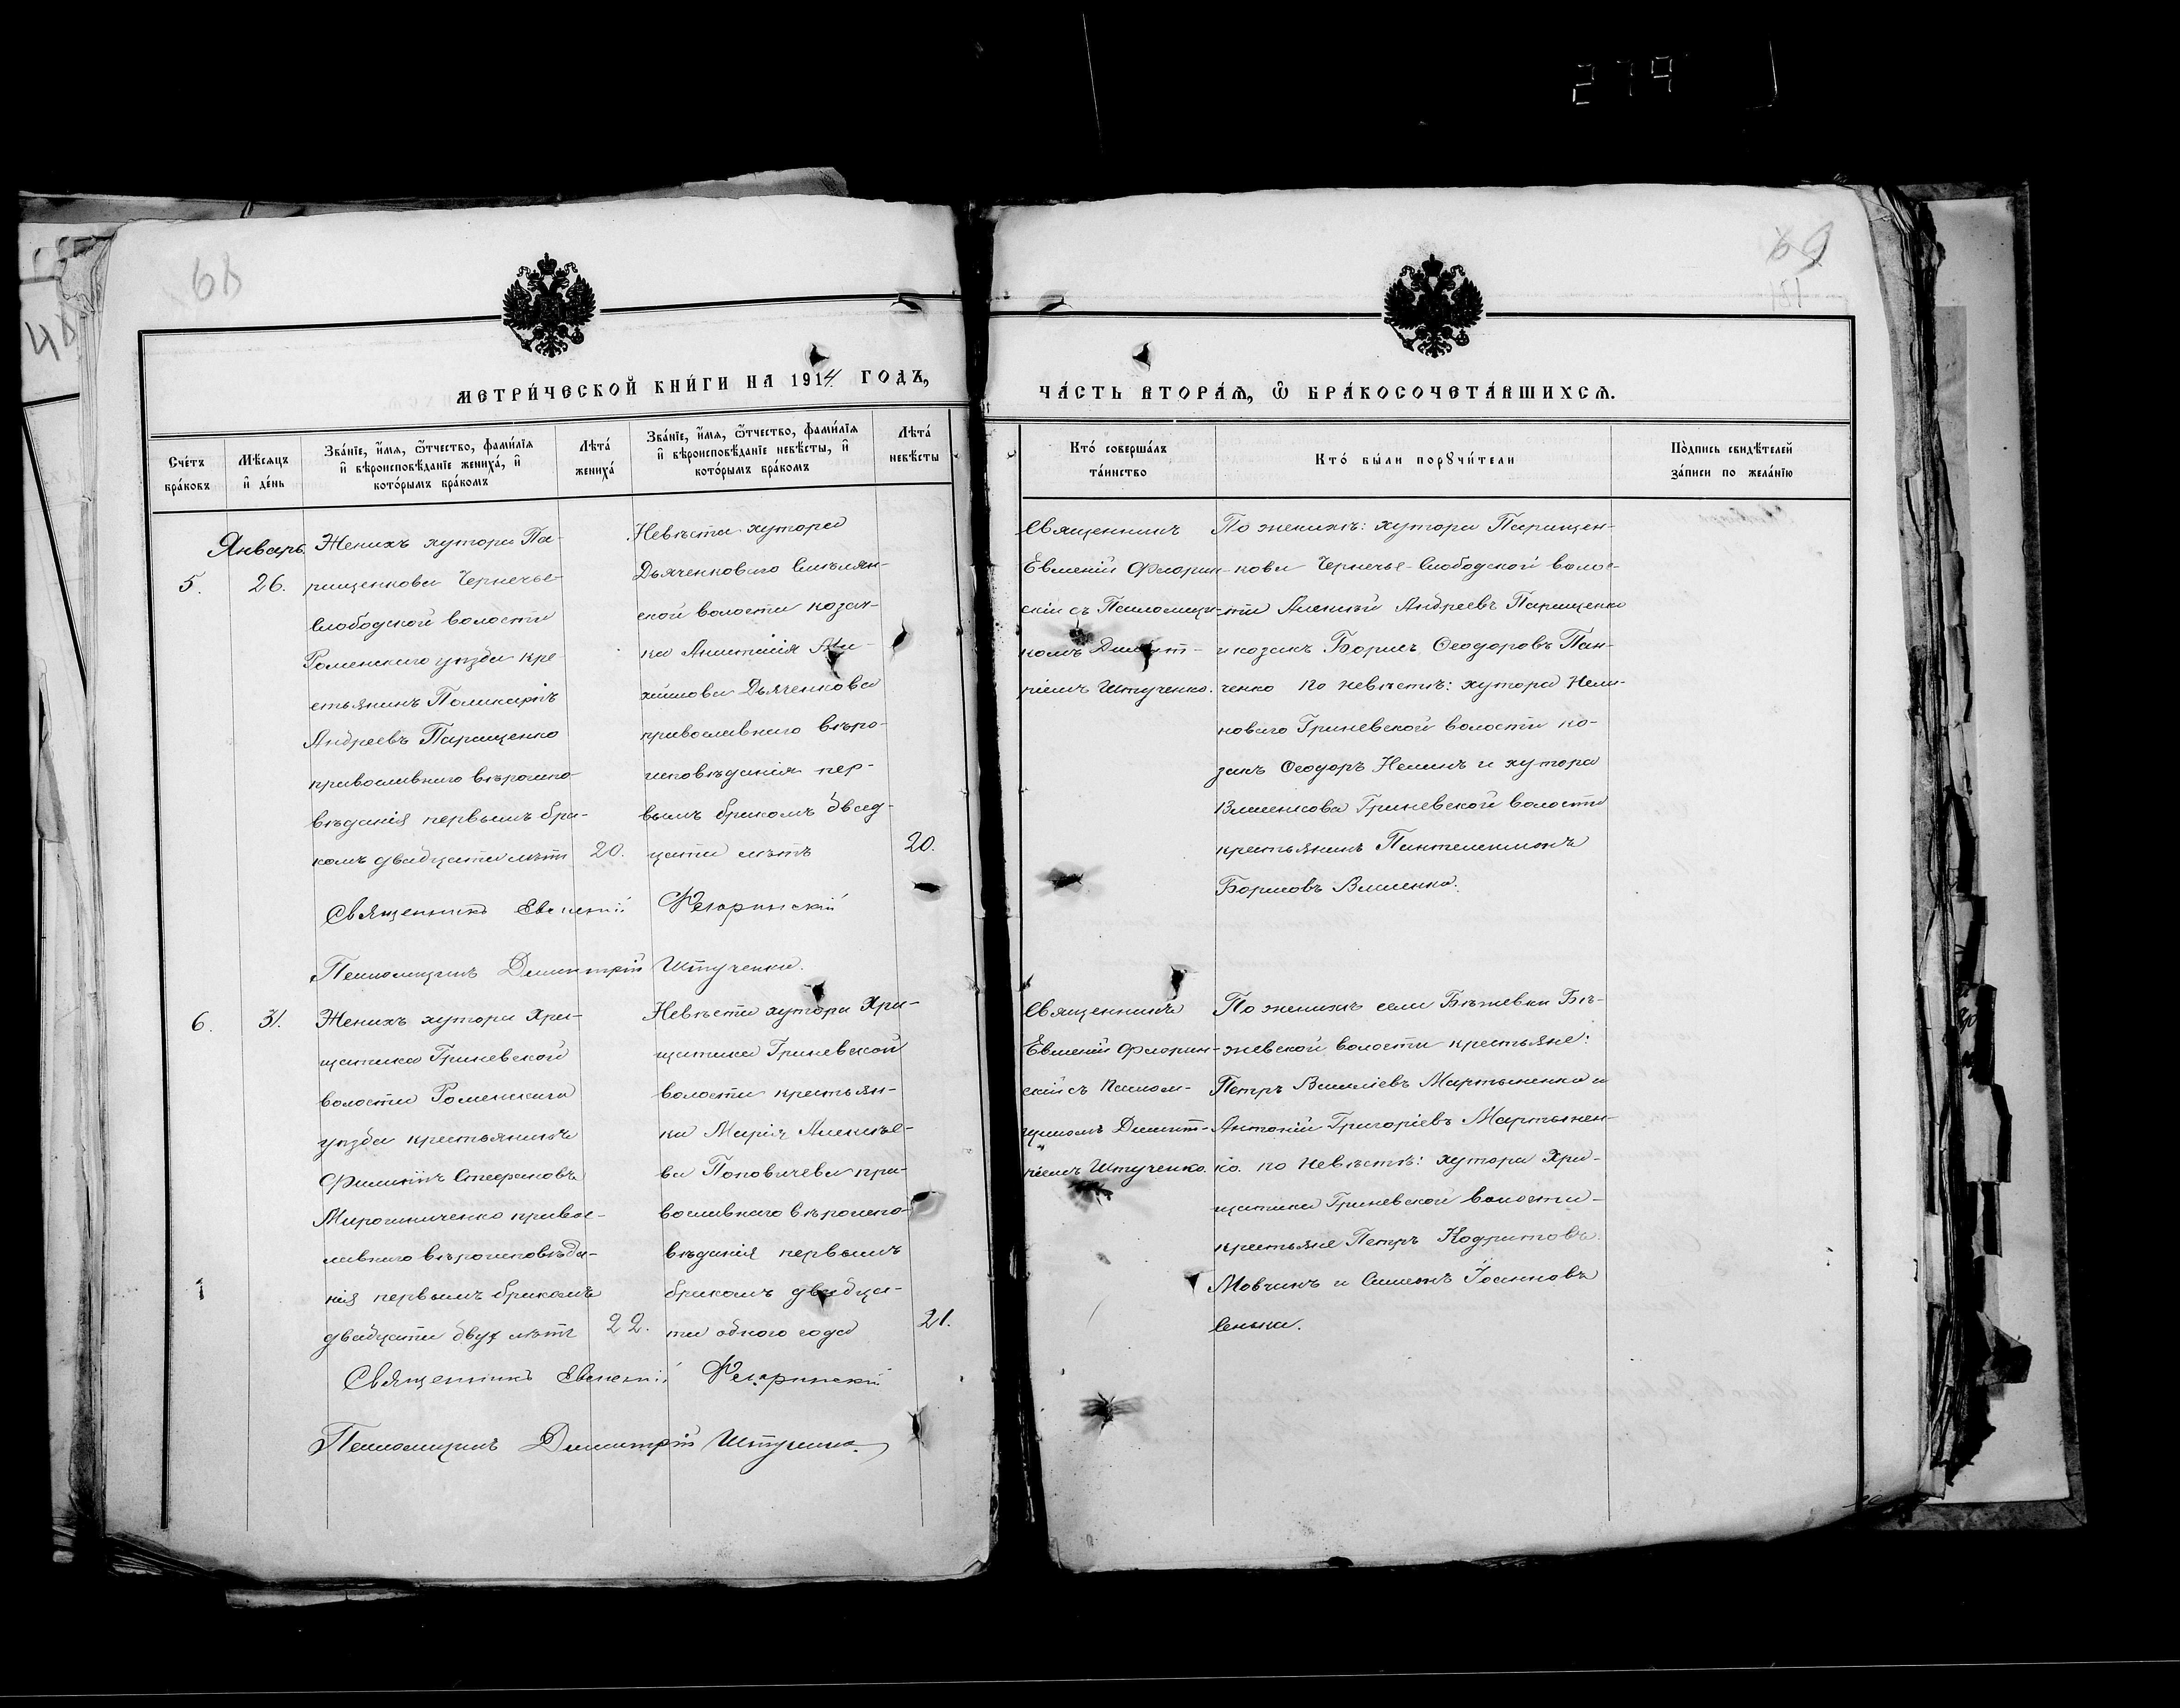 279
68
69
181
48
МЕТРИ́ЧЕСКОЙ КНИ́ГИ НА 1914 ГОДЪ,
ЧА́СТЬ ВТОРА́Ѧ, Ѽ БРА́КОСОЧЕТА́ВШИХСѦ.
Сче́тъ бра́ковъ
Мѣ́сяцъ и҆ де́нь
Зва́нїе, и҆́мѧ, ѻ҆́тчество, фами́лїѧ и҆ вѣроисповѣ́данїе жениха́, и҆ кото́рымъ бра́комъ
Лѣта́ жениха́
Зва́нїе, и҆́мѧ, ѻ҆́тчество, фами́лїѧ и҆ вѣроисповѣ́данїе невѣ́сты, и҆ кото́рымъ бра́комъ
Лѣта́ невѣ́сты
Кто́ соверша́лъ та́инство
Кто́ бы́ли порꙋчи́тели
По́дпись свидѣ́телей за́писи по жела́нїю
Январь.
5.
26.
Женихъ хутора Па-
рищенкова Чернечье-
Слободской волости
Роменскаго уѣзда кре-
стьянинъ Поликарпъ
Андреевъ Парищенко
православнаго вѣроиспо-
вѣданія первымъ бра-
комъ двадцати лѣтъ
20.
Невѣста хутора
Дьяченкового Смѣлян-
ской волости козач-
ка Анастасія
Дьяченкова
православнаго вѣро-
исповѣданія пер-
вымъ бракомъ двад-
цати лѣтъ
20.
Священникъ Евгеній Флоринскій
Псаломщикъ Димитрій Штученко.
Священникъ
Евгеній Флорин-
скій съ Псаломщи-
комъ Димит-
ріемъ Штученко.
По женихѣ: хутора Парищен-
кова Чернечье-Слободской волос-
ти Алексѣй Андреевъ Парищенко
и козакъ Борисъ Ѳеодоровъ Пан-
ченко по невѣстѣ: хутора Нели-
нового Гриневской волости ко-
закъ Ѳеодоръ Нелинъ и хутора
Власенкова Гриневской волости
крестьянинъ Пантелеимонъ
Борисовъ Власенко.
6.
31.
Женихъ хутора Хри-
щатика Гриневской
волости Роменскаго
уѣзда крестьянинъ
Филиппъ Стефановъ
Мирошниченко правос-
лавнаго вѣроисповѣда-
нія первымъ бракомъ
двадцати двух лѣтъ
22.
Невѣста хутора Хри-
щатика Гриневской
волости крестьян-
ка Марія Алексѣе-
ва Поповичева пра-
вославнаго вѣроиспо-
вѣданія первымъ
бракомъ двадца-
ти одного года
21.
Священникъ Евгеній Флоринскій
Псаломщикъ Димитрій Штученко.
Священникъ
Евгеній Флорин-
скій съ Псалом-
щикомъ Димит-
ріемъ Штученко.
По женихѣ села Бѣжевки Бѣ-
жевской волости крестьяне:
Петръ Василіевъ Мартыненко и
Антоній Григоріевъ Мартынен-
ко. по Невѣстѣ: хутора Хри-
щатика Гриневской волости-
крестьяне Петръ Кодратовъ
Мовчанъ и Симеонъ Іоанновъ
Сенька.